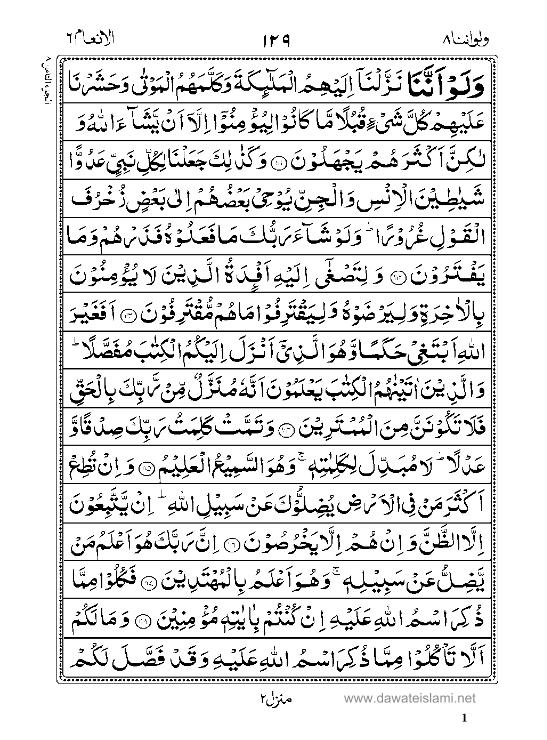 ولواننا ٨ ١٢٩ الانعام ٦
وَلَوْ اَنَّنَا نَزَّلْنَاۤ اِلَيْهِمُ الْمَلٰٓئِكَةَ وَكَلَّمَهُمُ الْمَوْتٰى وَحَشَرْنَا
عَلَيْهِمْ كُلَّ شَىْءٍ قُبُلًا مَّا كَانُوْا لِيُؤْمِنُوْۤا اِلَّاۤ اَنْ يَّشَآءَ اللّٰهُ وَ
لٰكِنَّ اَكْثَرَهُمْ يَجْهَلُوْنَ ۝ وَكَذٰلِكَ جَعَلْنَا لِكُلِّ نَبِىٍّ عَدُوًّا
شَيٰطِيْنَ الْاِنْسِ وَالْجِنِّ يُوْحِىْ بَعْضُهُمْ اِلٰى بَعْضٍ زُخْرُفَ
الْقَوْلِ غُرُوْرًا ؕ وَلَوْ شَآءَ رَبُّكَ مَا فَعَلُوْهُ فَذَرْهُمْ وَمَا
يَفْتَرُوْنَ ۝ وَلِتَصْغٰۤى اِلَيْهِ اَفْـِٕدَةُ الَّذِيْنَ لَا يُؤْمِنُوْنَ
بِالْاٰخِرَةِ وَلِيَرْضَوْهُ وَلِيَقْتَرِفُوْا مَا هُمْ مُّقْتَرِفُوْنَ ۝ اَفَغَيْرَ
اللّٰهِ اَبْتَغِىْ حَكَمًا وَّهُوَ الَّذِىْۤ اَنْزَلَ اِلَيْكُمُ الْكِتٰبَ مُفَصَّلًا ؕ
وَالَّذِيْنَ اٰتَيْنٰهُمُ الْكِتٰبَ يَعْلَمُوْنَ اَنَّهٗ مُنَزَّلٌ مِّنْ رَّبِّكَ بِالْحَقِّ
فَلَا تَكُوْنَنَّ مِنَ الْمُمْتَرِيْنَ ۝ وَتَمَّتْ كَلِمَتُ رَبِّكَ صِدْقًا وَّ
عَدْلًا ؕ لَا مُبَدِّلَ لِكَلِمٰتِهٖ ۚ وَهُوَ السَّمِيْعُ الْعَلِيْمُ ۝ وَاِنْ تُطِعْ
اَكْثَرَ مَنْ فِى الْاَرْضِ يُضِلُّوْكَ عَنْ سَبِيْلِ اللّٰهِ ؕ اِنْ يَّتَّبِعُوْنَ
اِلَّا الظَّنَّ وَاِنْ هُمْ اِلَّا يَخْرُصُوْنَ ۝ اِنَّ رَبَّكَ هُوَ اَعْلَمُ مَنْ
يَّضِلُّ عَنْ سَبِيْلِهٖ ۚ وَهُوَ اَعْلَمُ بِالْمُهْتَدِيْنَ ۝ فَكُلُوْا مِمَّا
ذُكِرَ اسْمُ اللّٰهِ عَلَيْهِ اِنْ كُنْتُمْ بِاٰيٰتِهٖ مُؤْمِنِيْنَ ۝ وَمَا لَكُمْ
اَلَّا تَاْكُلُوْا مِمَّا ذُكِرَ اسْمُ اللّٰهِ عَلَيْهِ وَقَدْ فَصَّلَ لَكُمْ
منزل ٢
www.dawateislami.net
1